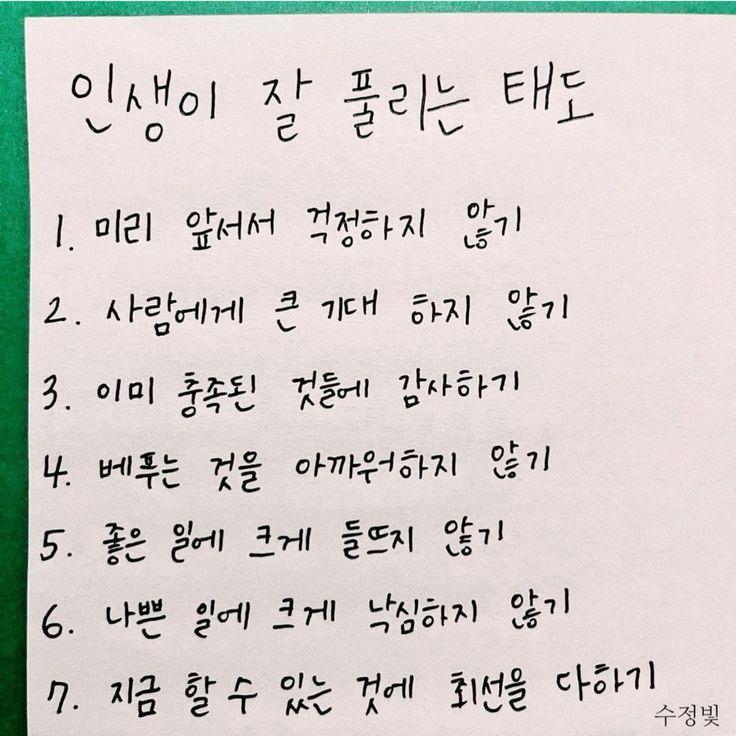 인생이 잘 풀리는 태도
1. 미리 앞서서 걱정하지 않기
2. 사람에게 큰 기대 하지 않기
3. 이미 충족된 것들에 감사하기
4. 베푸는 것을 아까워하지 않기
5. 좋은 일에 크게 들뜨지 않기
6. 나쁜 일에 크게 낙심하지 않기
7. 지금 할 수 있는 것에 최선을 다하기
수정빛